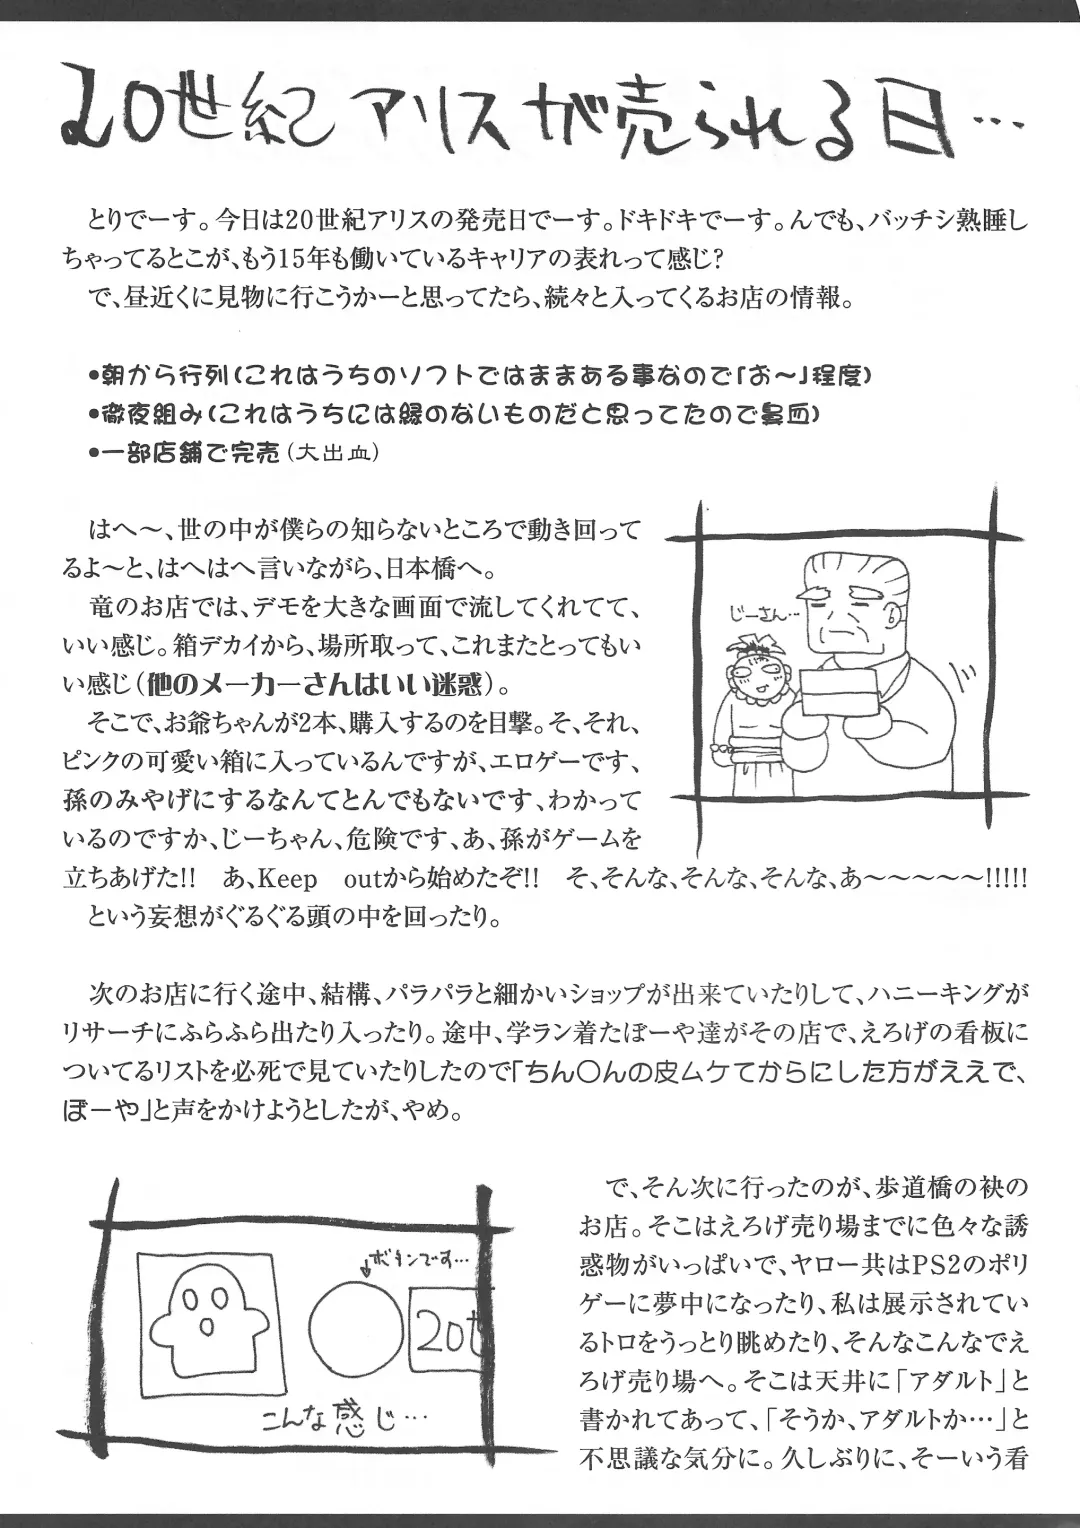 20世紀アリスが売られる日…
とりでーす。今日は20世紀アリスの発売日でーす。ドキドキでーす。んでも、バッチシ熟睡し
ちゃってるとこが、もう15年も働いているキャリアの表れって感じ?
で、昼近くに見物に行こうかーと思ってたら、続々と入ってくるお店の情報。
●朝から行列(これはうちのソフトではままある事なので「お〜」程度)
●徹夜組み(これはうちには縁のないものだと思ってたので鼻血)
●一部店舗で完売(大出血)
はへ〜、世の中が僕らの知らないところで動き回って
るよ〜と、はへはへ言いながら、日本橋へ。
竜のお店では、デモを大きな画面で流してくれてて、
いい感じ。箱デカイから、場所取って、これまたとってもい
い感じ(他のメーカーさんはいい迷惑)。
そこで、お爺ちゃんが2本、購入するのを目撃。そ、それ、
ピンクの可愛い箱に入っているんですが、エロゲーです、
孫のみやげにするなんてとんでもないです、わかって
いるのですか、じーちゃん、危険です、あ、孫がゲームを
立ちあげた!!　あ、Keep　outから始めたぞ!!　そ、そんな、そんな、そんな、あ〜〜〜〜〜!!!!!
という妄想がぐるぐる頭の中を回ったり。
じーさん…
次のお店に行く途中、結構、パラパラと細かいショップが出来ていたりして、ハニーキングが
リサーチにふらふら出たり入ったり。途中、学ラン着たぼーや達がその店で、えろげの看板に
ついてるリストを必死で見ていたりしたので「ちん○んの皮ムケてからにした方がええで、
ぼーや」と声をかけようとしたが、やめ。
ボタンです…
20t
こんな感じ…
で、そん次に行ったのが、歩道橋の袂の
お店。そこはえろげ売り場までに色々な誘
惑物がいっぱいで、ヤロー共はPS2のポリ
ゲーに夢中になったり、私は展示されてい
るトロをうっとり眺めたり、そんなこんなでえ
ろげ売り場へ。そこは天井に「アダルト」と
書かれてあって、「そうか、アダルトか…」と
不思議な気分に。久しぶりに、そーいう看